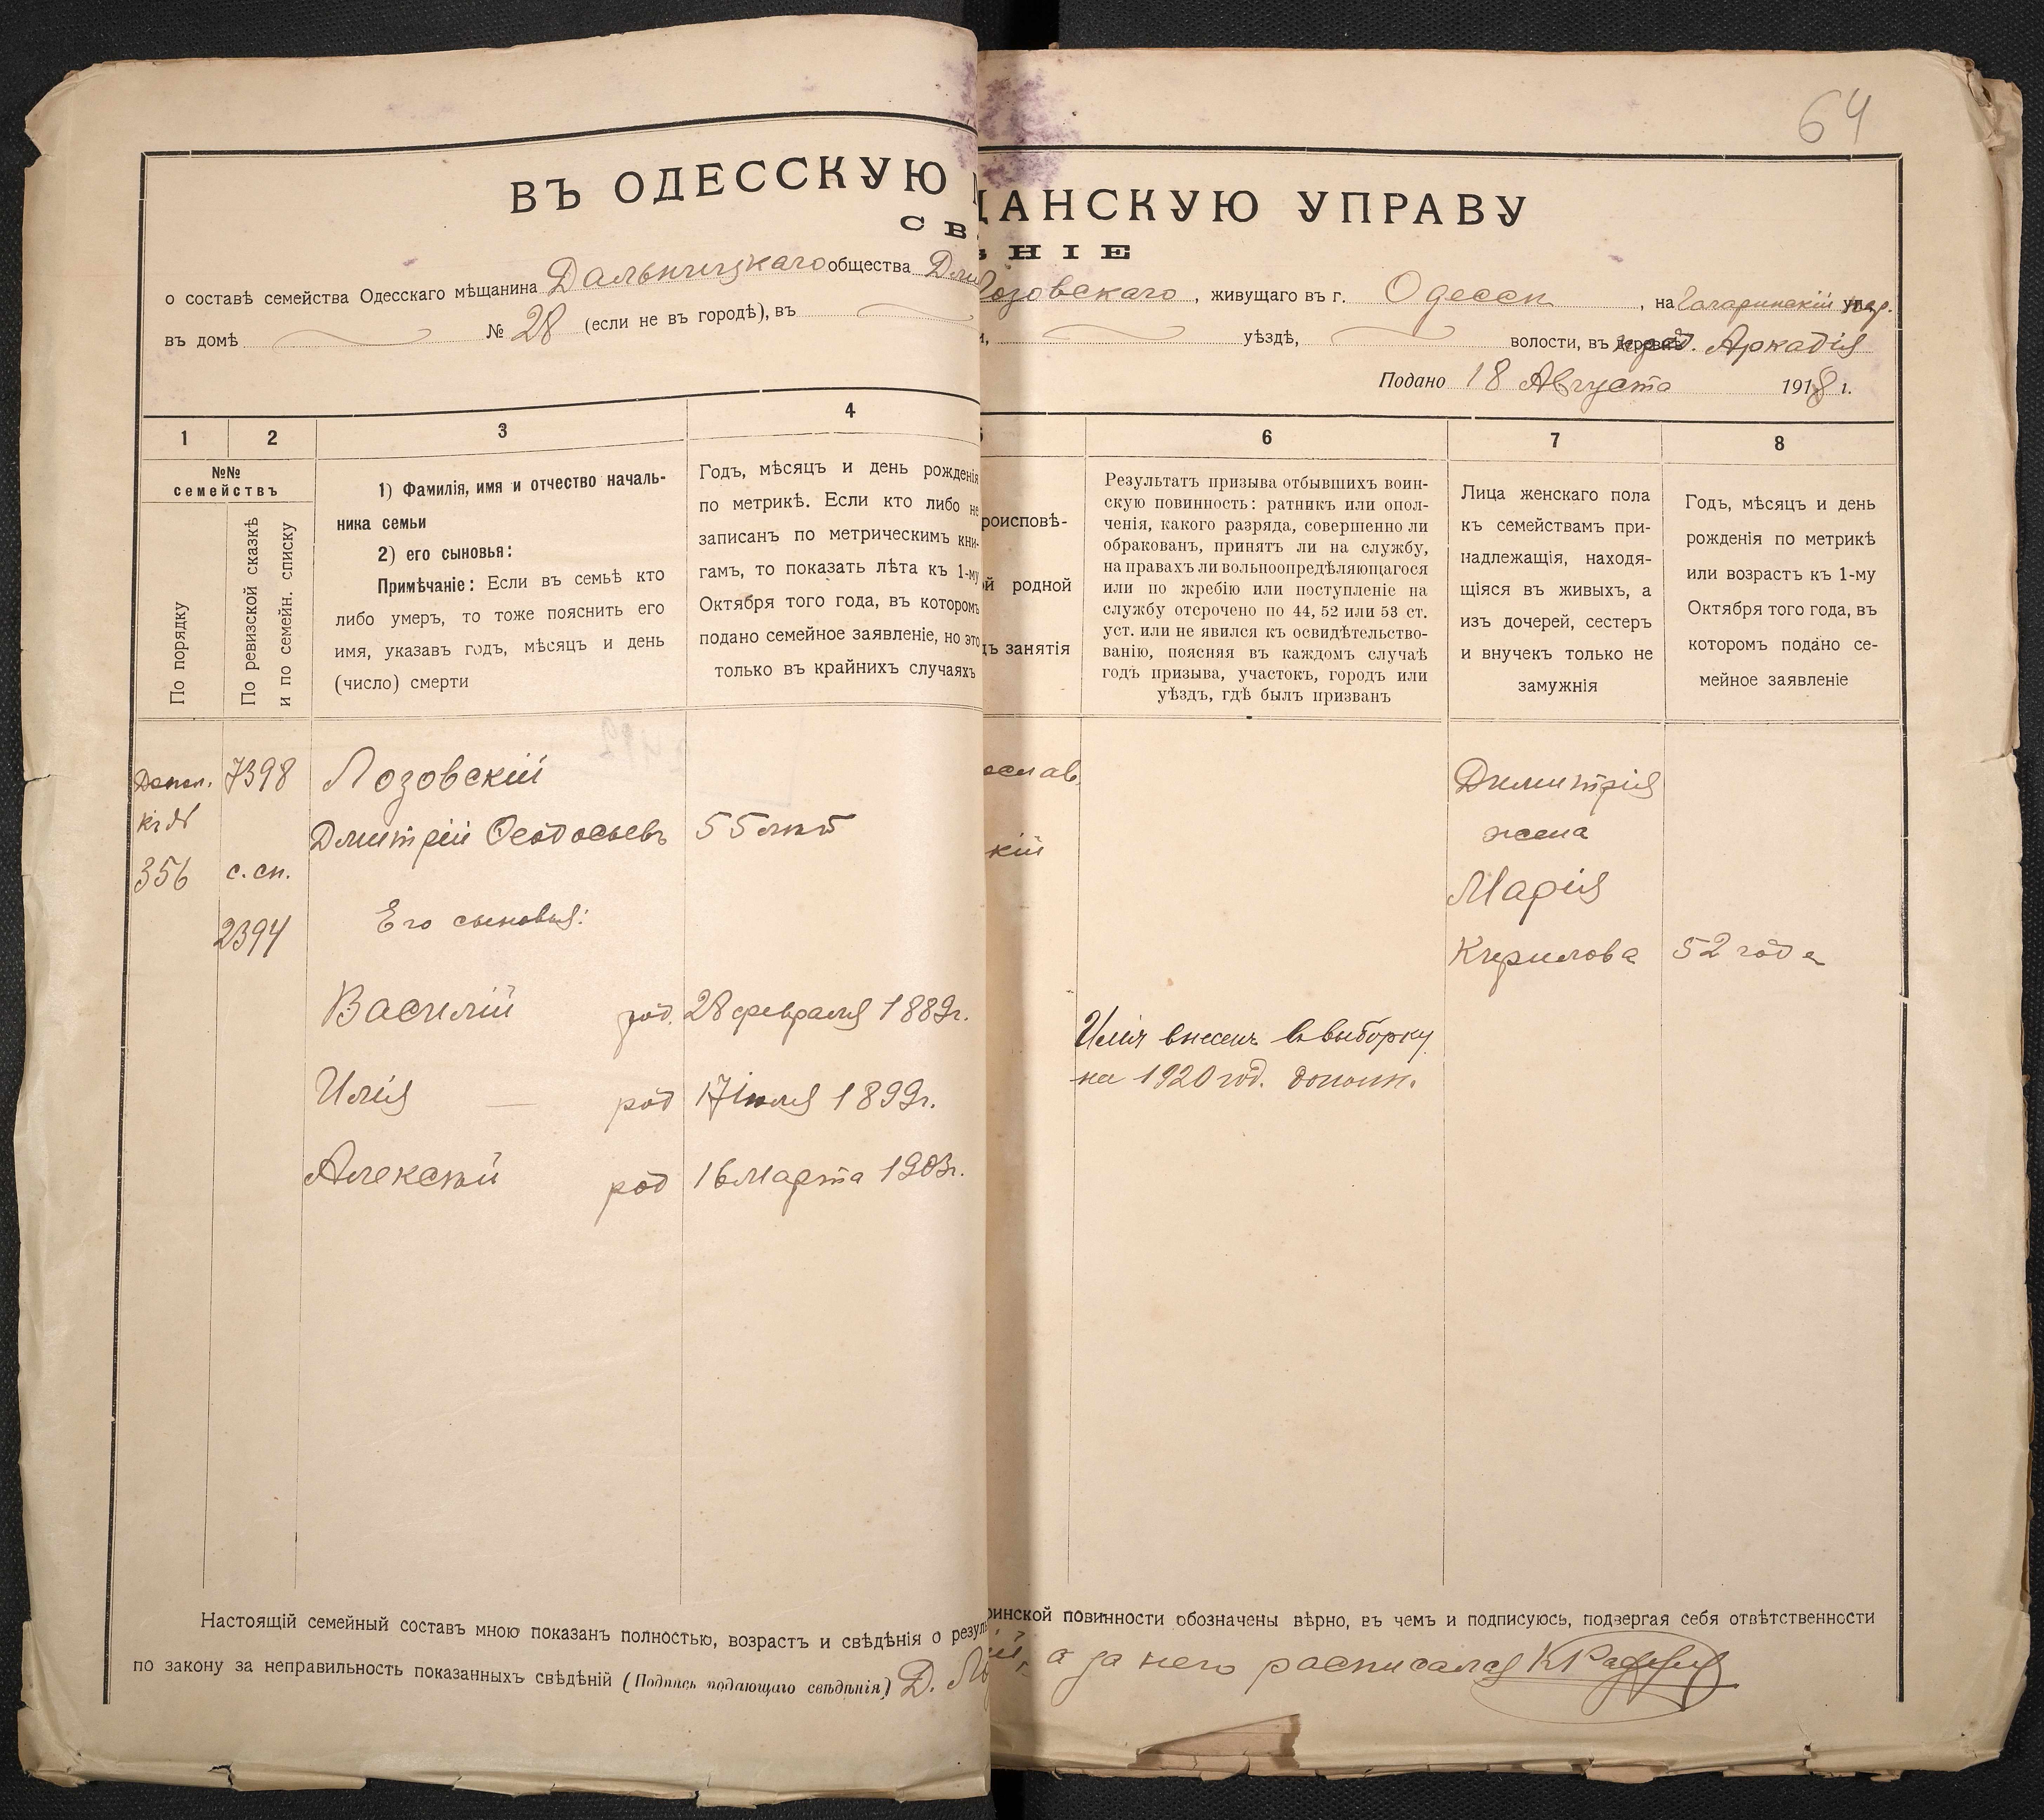 64
ВЪ ОДЕССКУЮ
ЩАНСКУЮ УПРАВУ
СВ
ѢНІЕ
о составѣ семейства Одесскаго мѣщанина Дальницкаго общества Дми
Лозовскаго, живущаго въ г. Одессѣ, на Гагаринскій
въ домѣ № 28 (если не въ городѣ), въ
уѣздѣ, волости, въ Аркадія
Подано 18 Августа 1918 г.
1 2 3 4
6 7 8
№№ семействъ
По порядку
По ревизской сказкѣ и по семейн. списку
1) Фамилія, имя и отчество началь-
ника семьи
2) его сыновья:
Примѣчаніе: Если въ семьѣ кто
либо умеръ, то тоже пояснить его
имя, указавъ годъ, мѣсяцъ и день
(число) смерти
Годъ, мѣсяцъ и день рожденія
по метрикѣ. Если кто либо не
записанъ по метрическимъ кни-
гамъ, то показать лѣта къ 1-му
Октября того года, въ которомъ
подано семейное заявленіе, но это
только въ крайнихъ случаяхъ
роисповѣ-
й родной
дъ занятія
Результатъ призыва отбывшихъ воин-
скую повинность: ратникъ или опол-
ченія, какого разряда, совершенно ли
обракованъ, принятъ ли на службу,
на правахъ ли вольноопредѣляющагося
или по жребію или поступленіе на
службу отсрочено по 44, 52 или 53 ст.
уст. или не явился къ освидѣтельство-
ванію, поясняя въ каждомъ случаѣ
годъ призыва, участокъ, городъ или
уѣздъ, гдѣ былъ призванъ
Лица женскаго пола
къ семействамъ при-
надлежащія, находя-
щіяся въ живыхъ, а
изъ дочерей, сестеръ
и внучекъ только не
замужнія
Годъ, мѣсяцъ и день
рожденія по метрикѣ
или возрастъ къ 1-му
Октября того года, въ
которомъ подано се-
мейное заявленіе
Допол. 7398 Лозовскій
къ № Дмитрій Ѳеодосьевъ 55 лѣтъ
356 с. сп.
2394 Его сыновья:
Василій род. 28 февраля 1889 г.
Илія — род 17 іюля 1899 г.
Алексѣй род 16 Марта 1903 г.
ослав.
кій
Илія внесенъ въ выборку
на 1920 год. дополн.
Димитрія
жена
Марія
Кирилова 52 года
Настоящій семейный составъ мною показанъ полностью, возрастъ и свѣдѣнія о резуль
оинской повинности обозначены вѣрно, въ чемъ и подписуюсь, подвергая себя отвѣтственности
по закону за неправильность показанныхъ свѣдѣній (Подпись подающаго свѣдѣнія) Д.
а за него росписался